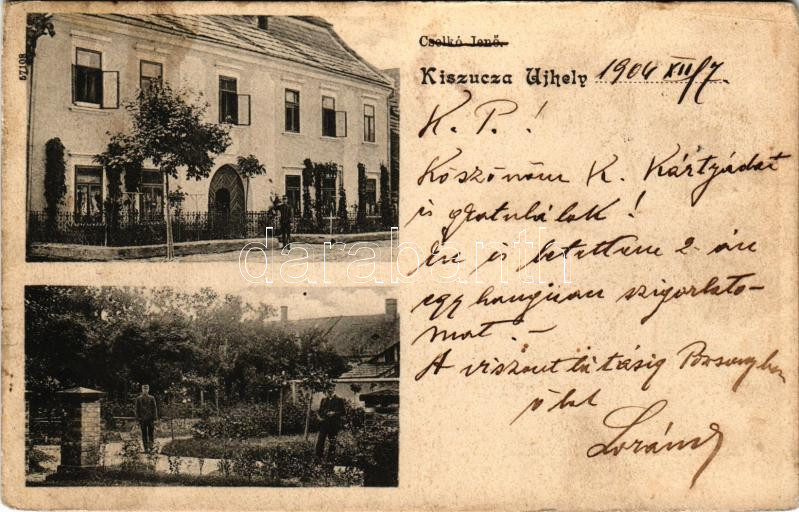 57108
Cselkó Jenő.
Kiszucza Ujhely 1904 XII/7.
K. P. !
Köszönöm K. Kártyádat
is gratulálok !
Én is letettem 2-án
egyhangúan szigorlato-
mat. -
A viszontlátásig Pozsonyban
ölel
Loránd
darabanth